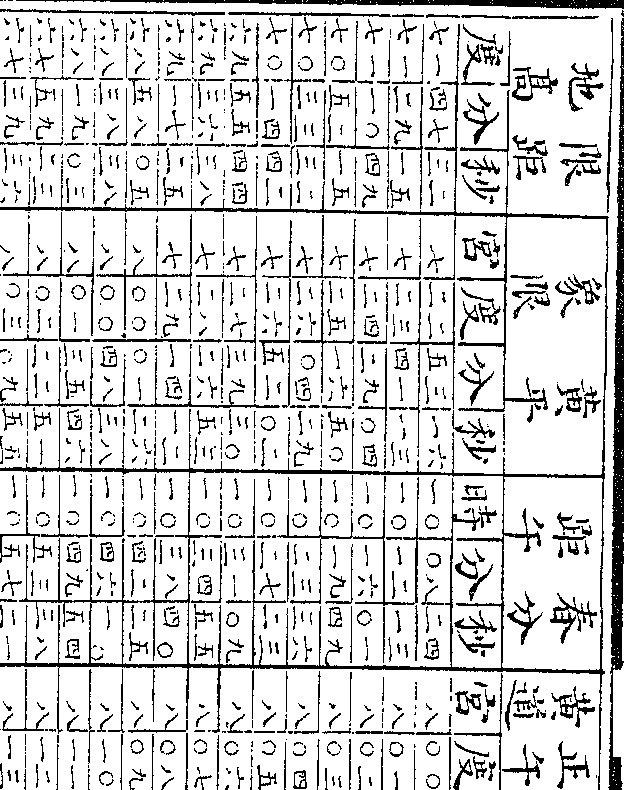 限距地高 黄平象限 春分距午 正午黄道
度分秒宮度分秒時分秒宮度
七一四七三二七二二五三一六一〇〇八二四八〇〇
七一二九一五七二三四一一三一〇一二一三八〇一
七一一〇四九七二四二九〇四一〇一六〇一八〇二
七〇五二一五七二五一六五〇一〇一九四九八〇三
七〇三三三二七二六〇四二九一〇二三三六八〇四
七〇一四四二七二六五二〇二一〇二七二三八〇五
六九五五四四七二七三九三〇一〇三一〇九八〇六
六九三六三八七二八二六五三一〇三四五五八〇七
六九一七二五七二九一四一二一〇三八四〇八〇八
六八五八〇五八〇〇〇一二六一〇四二二五八〇九
六八三八三八八〇〇四八三八一〇四六一〇八一〇
六八一九〇三八〇一三五四六一〇四九五四八一一
六七五九二三八〇二二二五一一〇五三三八八一二
六七三九三六八〇三〇九五五一〇五七二一八一三